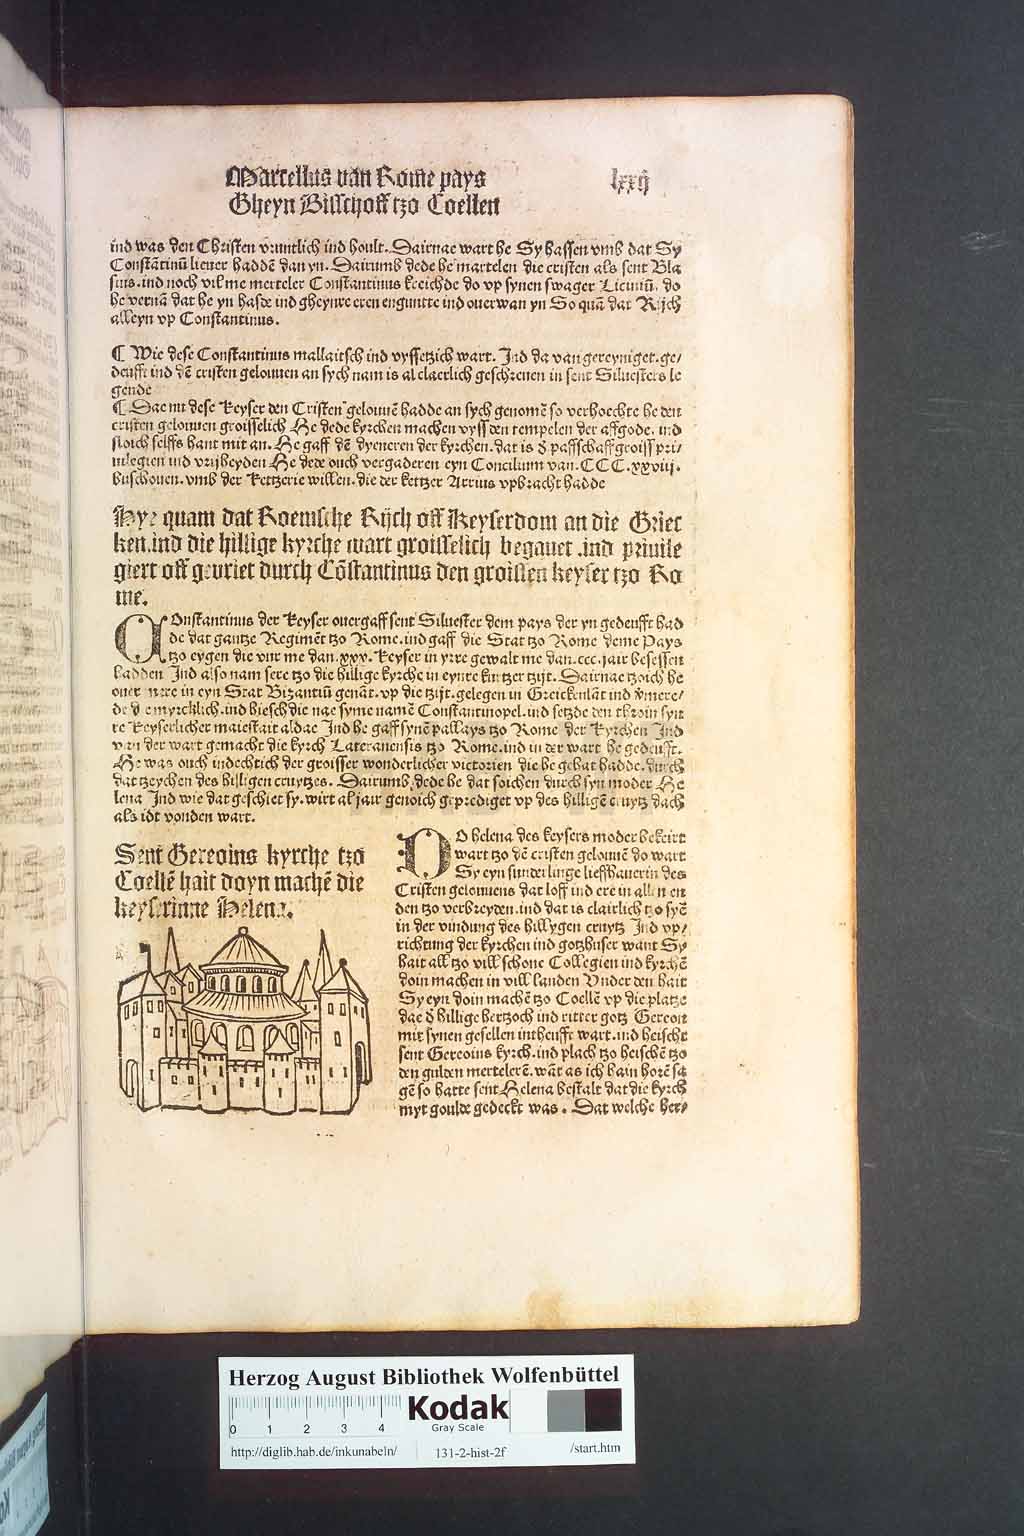 Marcellus van Rome pays
Gheyn Bisschoff tzo Coellen
lxxij
ind was den Christen vruntlich ind hoult. Dairnae wart he Sy hassen vmb dat Sy
Constātinū lieuer haddē dan yn. Dairumb dede he martelen die cristen als sent Bla
sius. ind noch vil me merteler Constantinus kreichde do vp synen swager Liciniū. do
he vernā dat he yn hasde ind gheynre eren enguntte ind ouerwan yn So quā dat Rijch
alleyn vp Constantinus.
¶ Wie dese Constantinus mallaitsch ind vyssetzich wart. Ind da van gereyniget. ge/
deufft ind dē cristen gelouuen an sych nam is al claerlich geschreuen in sent Siluesters le
gende
¶ Dae nu dese keyser den Cristen gelouuē hadde an sych genomē so verhoechte he den
cristen gelouuen groisselich He dede kyrchen machen vyss den tempelen der affgode. ind
sloich selffs hant mit an. He gaff dē dyeneren der kyrchen. dat is d paffschaff groiss pri/
uilegien ind vrijheyden He dede ouch vergaderen eyn Concilium van. CCC.xxviij.
buschouen. vmb der kettzerie willen. die der kettzer Arrius vpbracht hadde
Hye quam dat Roemsche Rijch off Keyserdom an die Griec
ken. ind die hillige kyrche wart groisselich begauet .ind priuile
giert off gevriet durch Cōstantinus den groissen keyser tzo Ro
me.
COnstantinus der keyser ouergaff sent Siluester dem pays der yn gedeufft had
de dat gantze Regimēt tzo Rome. ind gaff die Stat tzo Rome deme Pays
tzo eygen die vur me dan .xxx. keyser in yrre gewalt me dan .ccc. jair besessen
hadden Ind also nam sere tzo die hillige kyrche in eynre kurtzer tzijt. Dairnae tzoich he
ouer mere in eyn Stat Bizantiū genāt. vp die tzijt. gelegen in Greickenlāt ind v̄mere/
de d e myrcklich. ind hiesch die nae syme namē Constantinopel. ind setzde den throin syn
re keyserlicher maiestait aldae Ind he gaff synē pallays tzo Rome der kyrchen Ind
van der wart gemacht die kyrch Lateranensis tzo Rome. ind in der wart he gedeufft.
He was ouch indechtich der groisser wonderlicher victorien die he gehat hadde. durch
dat tzeychen des hilligen cruytzes. Dairumb dede he dat soichen durch syn moder He
lena Ind wie dat geschiet sy. wirt al jair genoich geprediget vp des hilligē cruytz dach
als idt vonden wart.
Sent Gereoins kyrche tzo
Coellē hait doyn machē die
keyserinne Helena.
DO helena des keysers moder bekeirt
wart tzo dē cristen gelouuē do wart
Sy eyn sunderlinge lieffhauerin des
Cristen gelouuens dat loff ind ere in allen en
den tzo verbreyden. ind dat is clairlich tzo syē
in der vindung des hillygen cruytz Ind vp/
richtung der kyrchen ind gotzhuser want Sy
hait all tzo vill schone Collegien ind kyrchē
doin machen in vill landen Vnder den hait
Sy eyn doin machē tzo Coellē vp die platze
dae d hillige hertzoch ind ritter gotz Gereon
mit synen gesellen intheufft wart. ind heischt
sent Gereoins kyrch. ind plach tzo heischē tzo
den gulden mertelerē. wāt as ich hain horē sa
gē so hatte sent Helena bestalt dat die kyrch
myt goulde gedeckt was. Dat welche her/
Herzog August Bibliothek Wolfenbüttel
0 1 2 3 4
Kodak
Gray Scale
http://diglib.hab.de/inkunabeln/
131-2-hist-2f
/start.htm